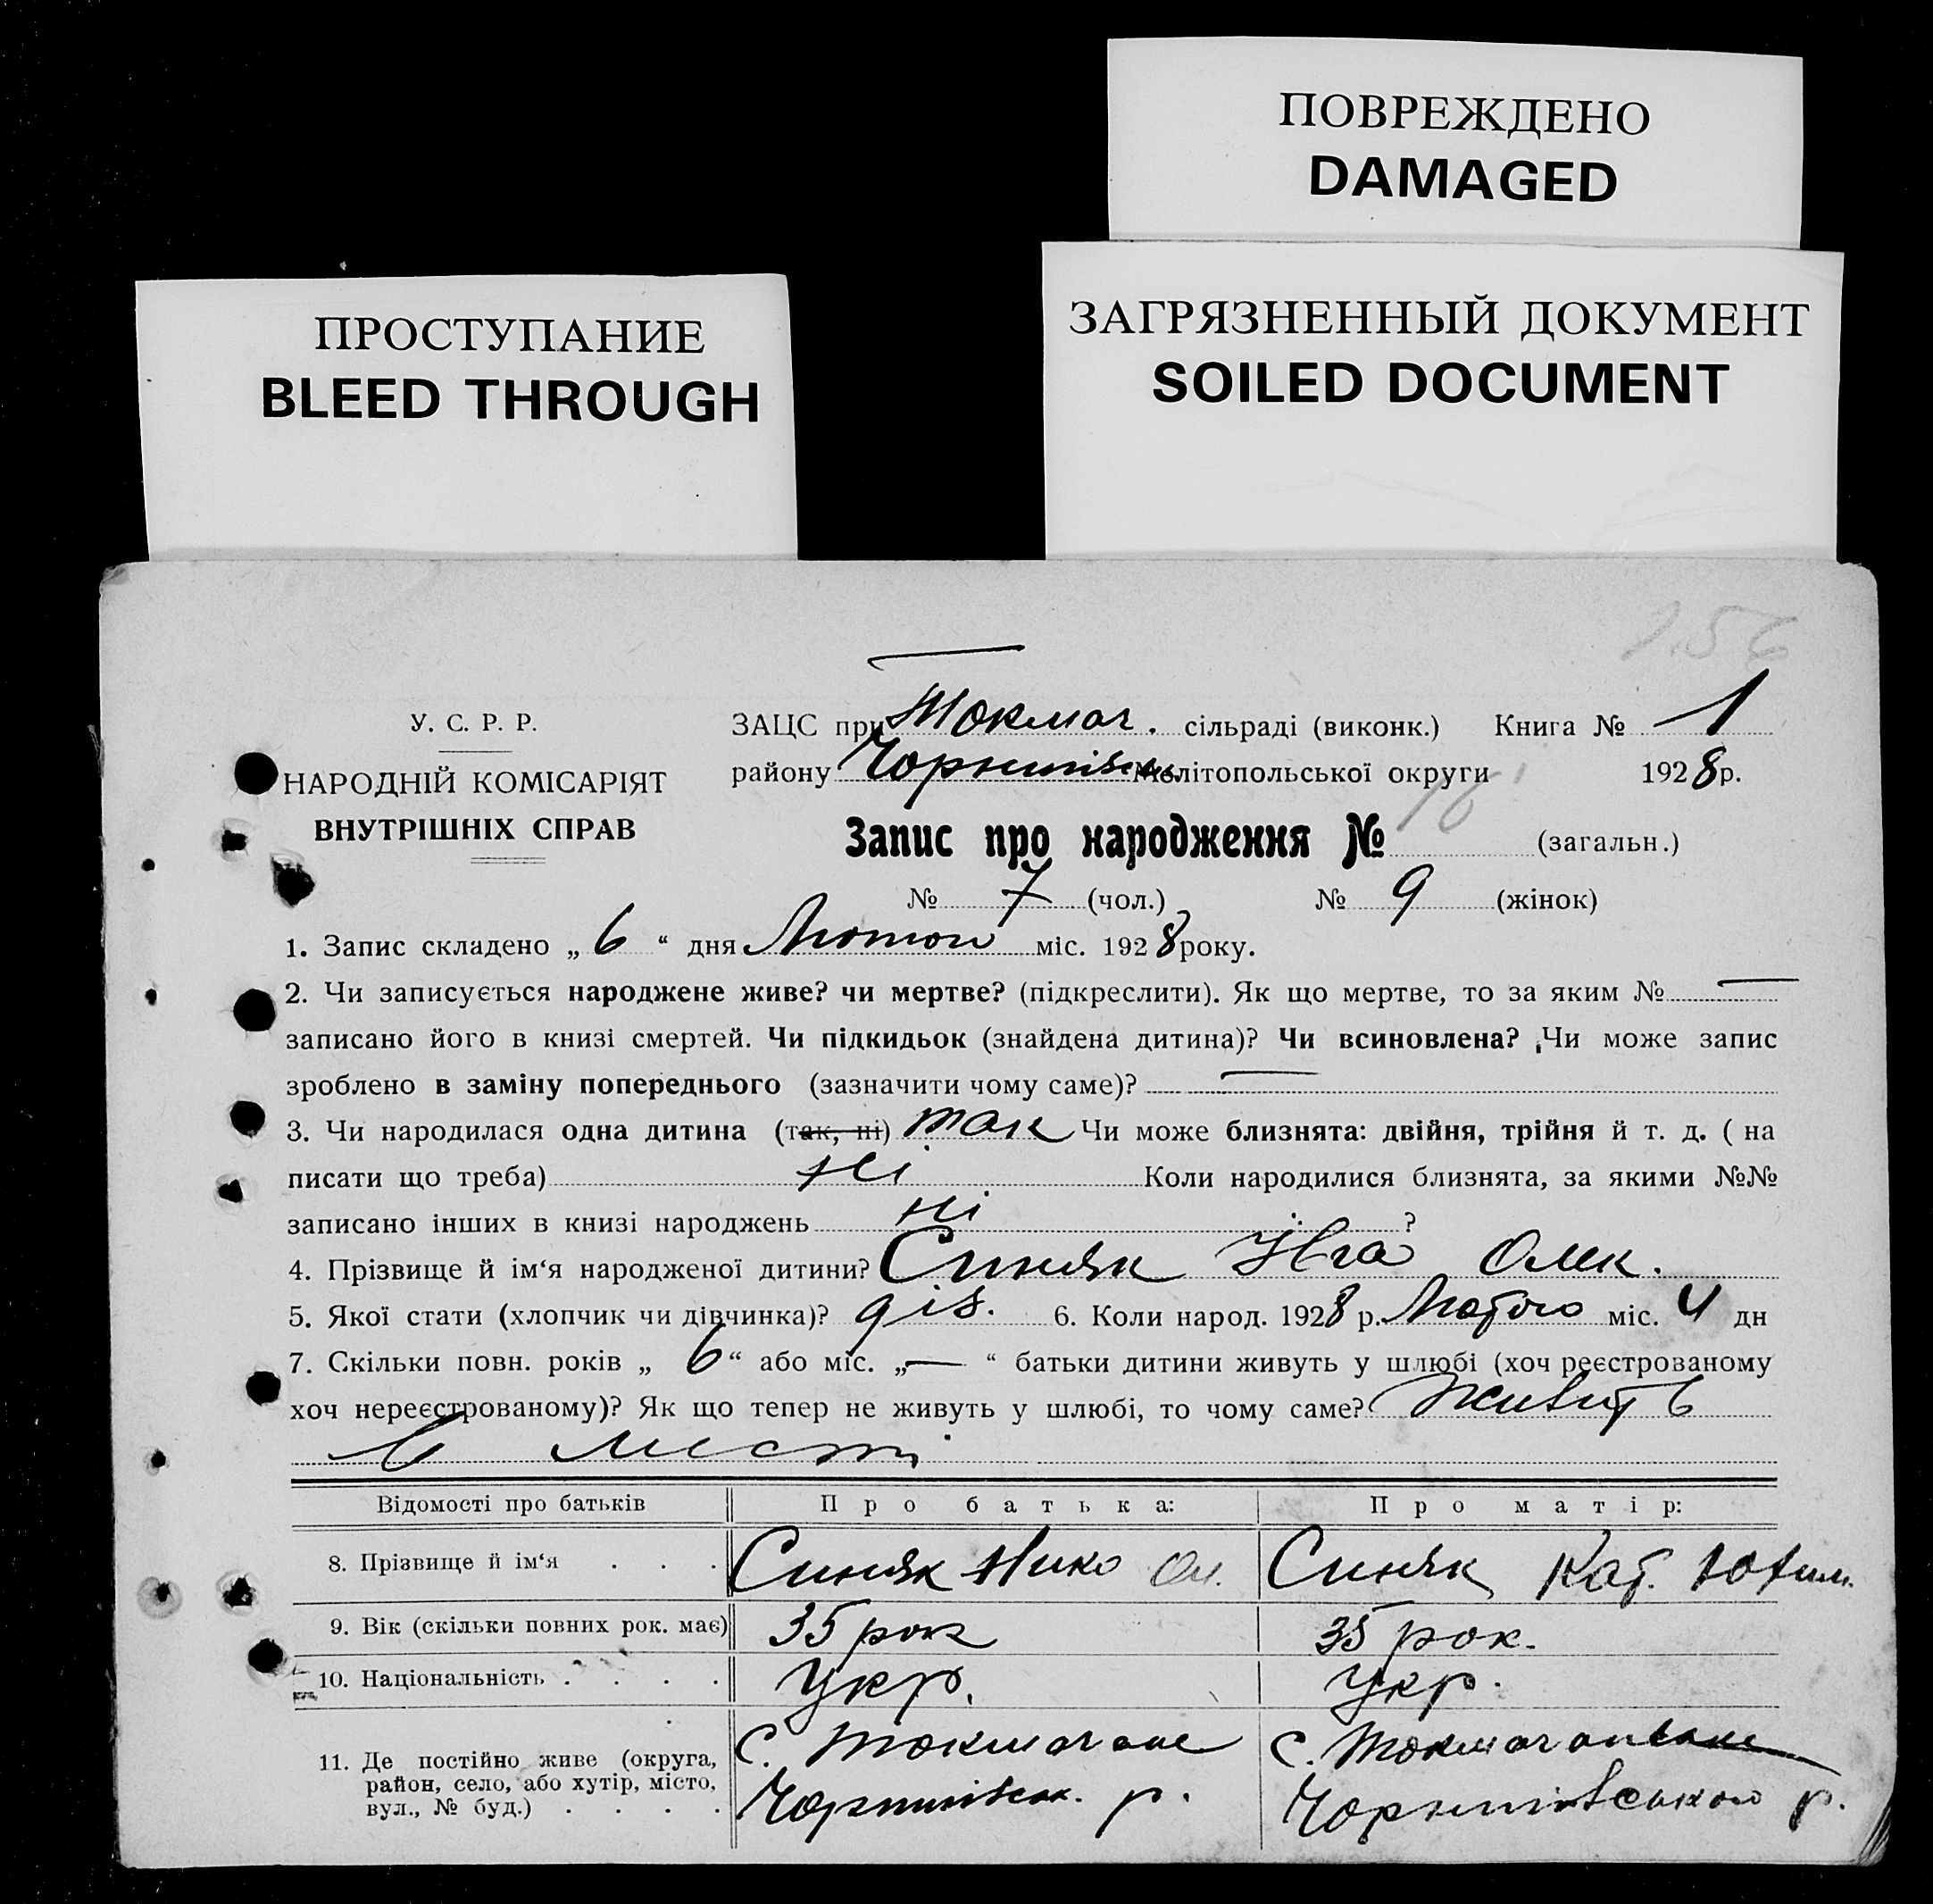 ПОВРЕЖДЕНО
DAMAGED
ПРОСТУПАНИЕ
BLEED THROUGH
ЗАГРЯЗНЕННЫЙ ДОКУМЕНТ
SOILED DOCUMENT
156
У. С. Р. Р.
НАРОДНІЙ КОМІСАРІЯТ
ВНУТРІШНІХ СПРАВ
ЗАЦС при Токмач. сільраді (виконк.) Книга № 1
району Чорниговськ Мелітопольської округи 1928 р.
Запис про народження № 16 (загальн.)
№ 7 (чол.) № 9 (жінок)
1. Запис складено „ 6 “ дня Лютого міс. 1928 року.
2. Чи записується народжене живе? чи мертве? (підкреслити). Як що мертве, то за яким № —
записано його в книзі смертей. Чи підкидьок (знайдена дитина)? Чи всиновлена? Чи може запис
зроблено в заміну попереднього (зазначити чому саме)? —
3. Чи народилася одна дитина (так, ні) так Чи може близнята: двійня, трійня й т. д. ( на
писати що треба) ні Коли народилися близнята, за якими №№
записано інших в книзі народжень ні ?
4. Прізвище й ім‘я народженої дитини? Синяк Олек.
5. Якої стати (хлопчик чи дівчинка)? дів. 6. Коли народ. 1928 р. Лютого міс. 4 дн
7. Скільки повн. років „ 6 “ або міс. „ — “ батьки дитини живуть у шлюбі (хоч реєстрованому
хоч нереєстрованому)? Як що тепер не живуть у шлюбі, то чому саме? Живуть
в місті
Відомості про батьків Про батька: Про матір:
8. Прізвище й ім‘я . . . Синяк Нико Ол. Синяк Кат. Юхим.
9. Вік (скільки повних рок. має) 35 рок 35 рок.
10. Національність . . . . Укр. Укр.
11. Де постійно живе (округа,
район, село, або хутір, місто,
вул., № буд.) . . . .
с.
р.
с.
р.